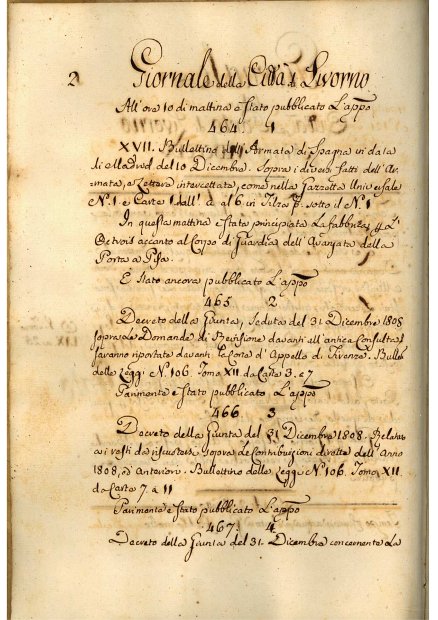 2 Giornale della Città di Livorno
All'ore 10 di mattina è stato pubblicato L'appo
464 1
XVII. Bullettino dell'Armata di Spagna in data
di Madrid del 10 Decembre. Sopra i diversi fatti dell'Ar-
mata, e Lettere intercettate, come nella Gazzetta Universale
N.º 1 e Carte 1 dall' a al 6 in Filza sotto il N.º 1
In questa mattina è stata principiata La fabbrica
Octrois accanto al Corpo di Guardia dell'Avanzata della
Porta a Pisa.
È stato ancora pubblicato L'appo
465 2
Decreto della Giunta, Seduta del 31 Dicembre 1808
sopra Le Domande di Revisione davanti all'antica Consulta
saranno riportate davanti La Corte d'Appello di Firenze. Bullet
delle Leggi N.º 106. Tomo XII da Carte 3. a 7
Parimente è stato pubblicato L'appo
466 3
Decreto della Giunta del 31 Dicembre 1808. Relativo
a i resti da riscuotersi sopra Le Contribuzioni dirette dell'Anno
1808, ed Anteriori. Bullettino delle Leggi N.º 106. Tomo XII
da Carte 7. a 11
Parimente è stato pubblicato L'appo
467 4
Decreto della Giunta del 31. Dicembre concernente La